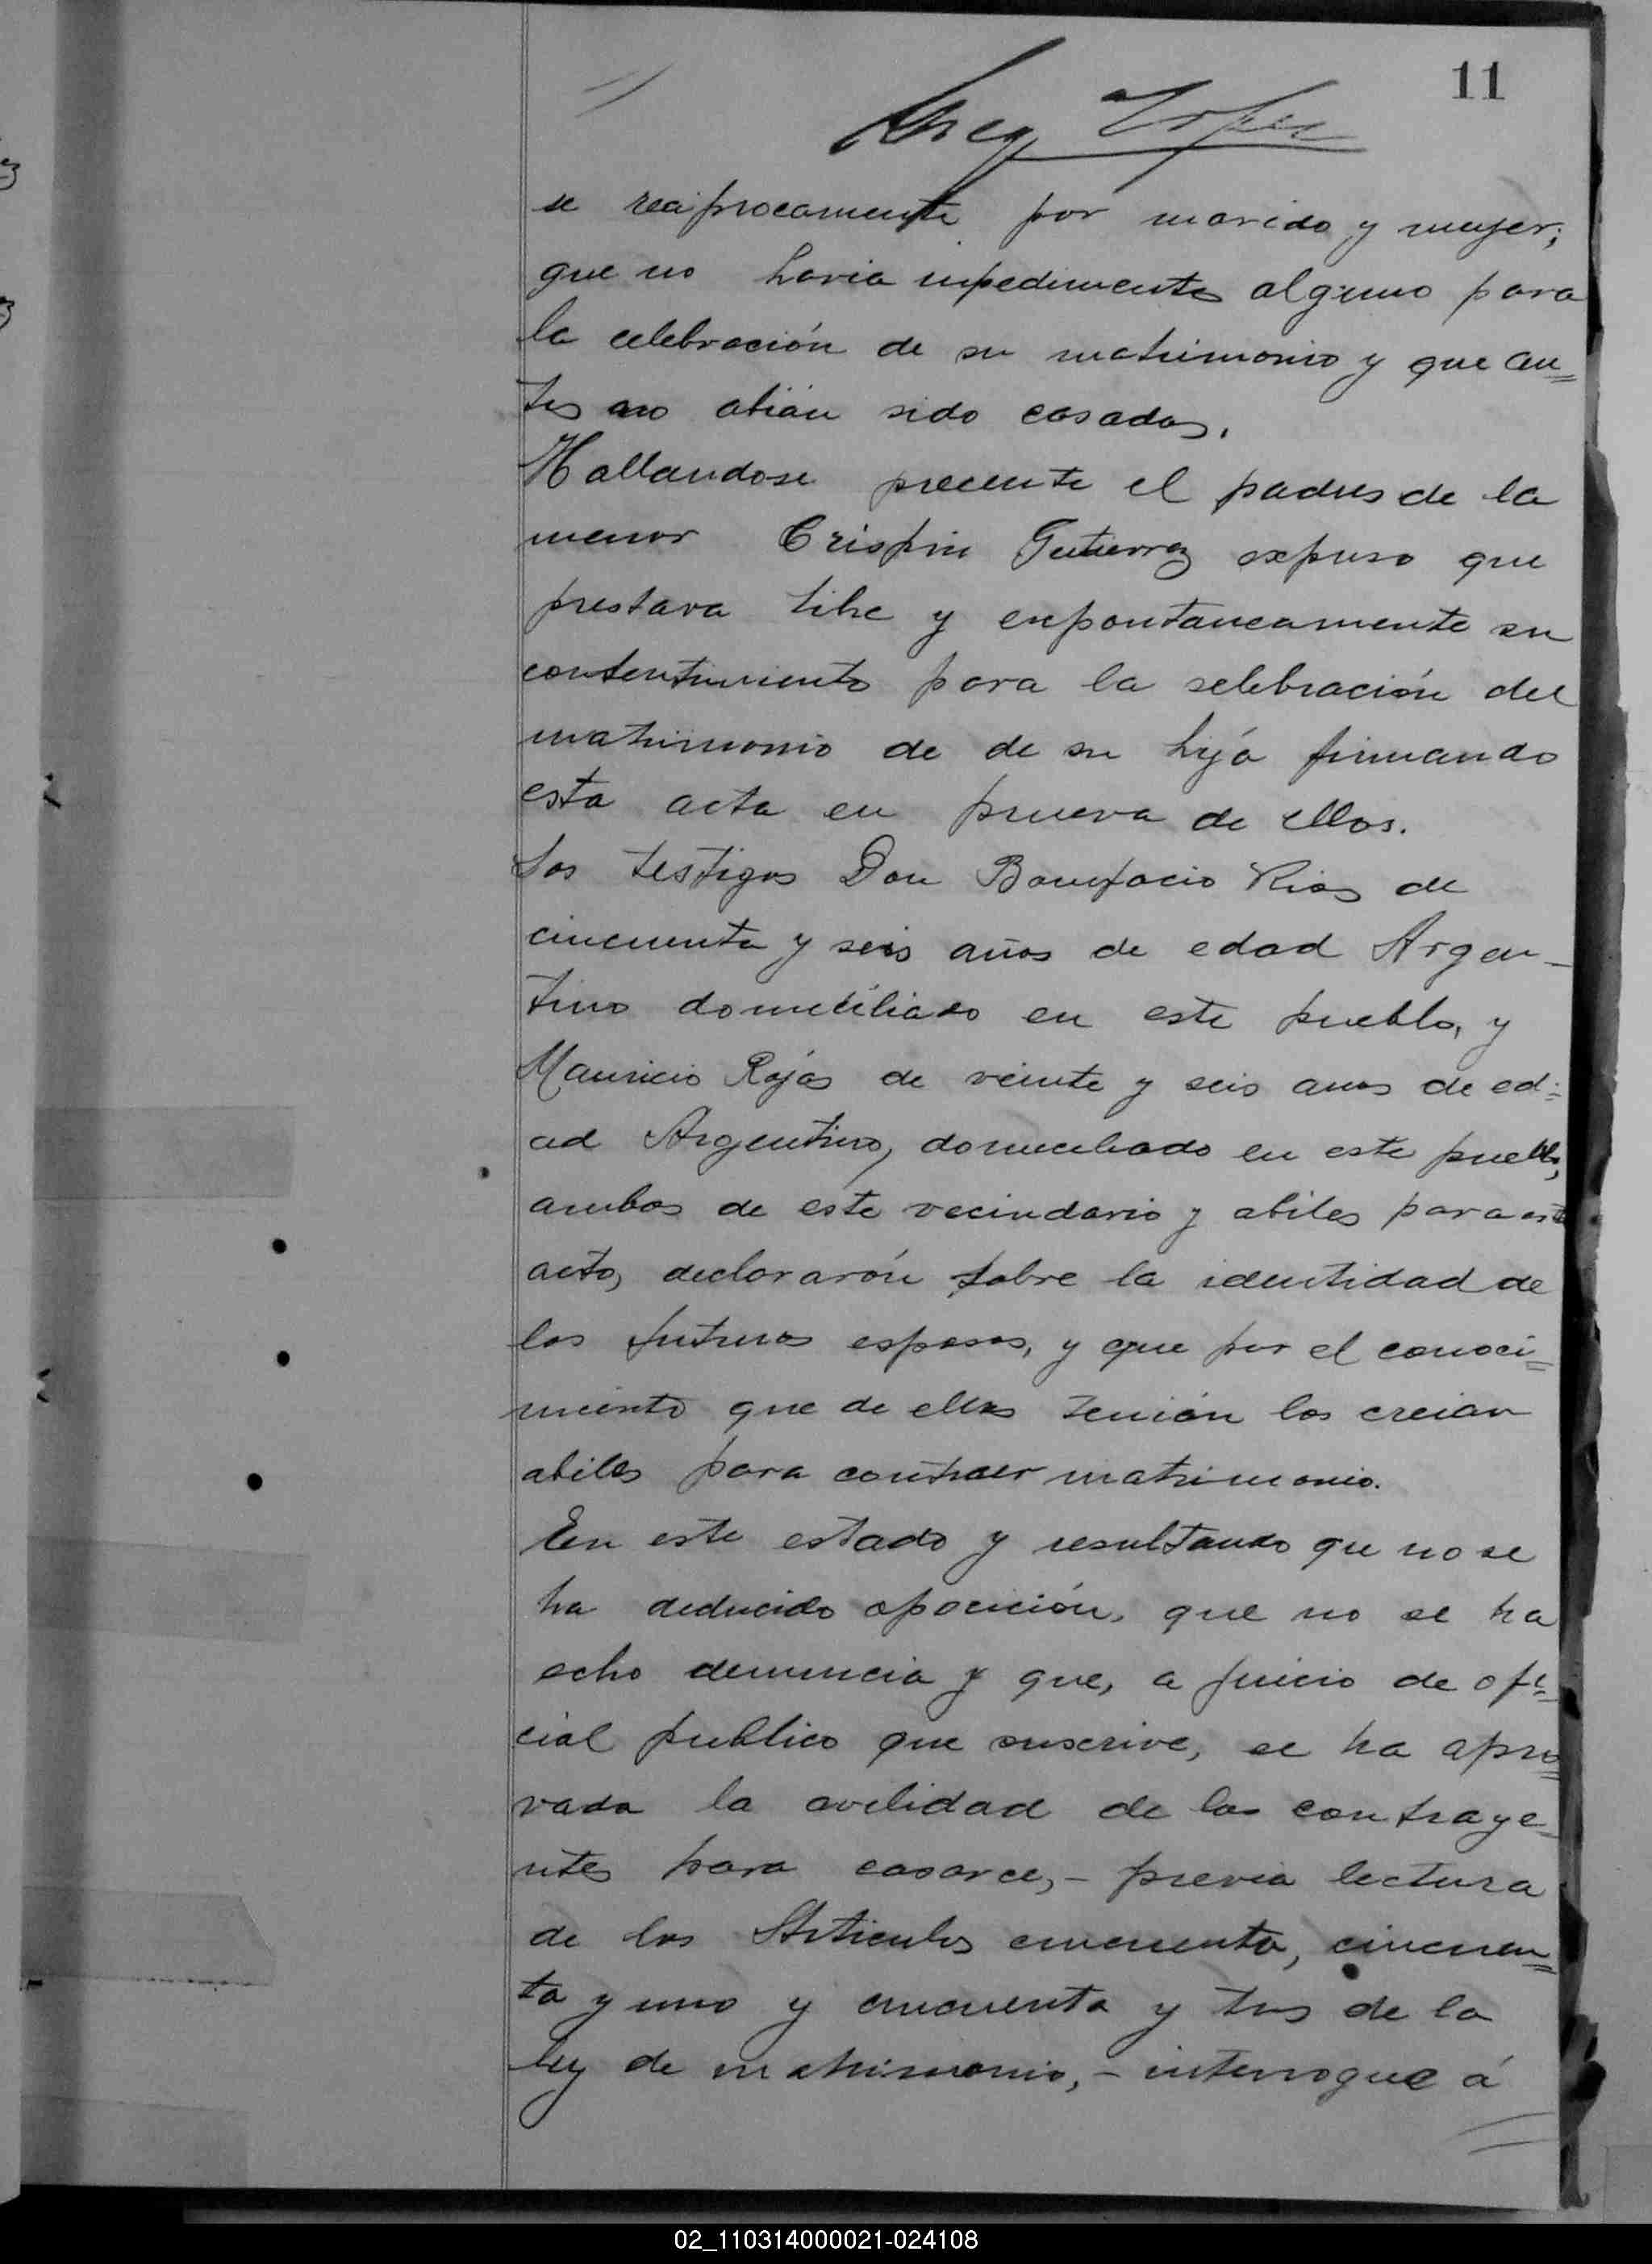 11
se reciprocamente por marido y mujer;
que no havia inpedimento alguno para
la celebración de su matrimonio y que an=
tes no abián sido casados.
Hallandose precente el padre de la
menor Crispin Gutierrez expuso que
prestava libre y enpontaneamente su
consentimiento para la selebración del
matrimonio de de su hijá firmando
esta acta en prueva de ellos.
Los testigos Don Bonifacio Rios de
cincuenta y seis años de edad Argen-
tino domiciliado en este pueblo, y
Mauricio Rojas de veinte y seis anos de ed=
ad Argentino, domiciliado en este pueblo,
ambos de este vecindario y abiles para este
acto, declararón sobre la identidad de
los futuros esposos, y que por el conoci=
miento que de ellos tenián los creian
abiles para contraer matrimonio.
En este estado y resultando que no se
ha deducido opocición, que no se ha
echo denuncia y que, a juicio de ofi=
cial publico que suscrive, se ha apro=
vada la avilidad de los contraye-
ntes para casarce,- previa lectura
de los Articulos cincuenta, cincuen=
ta y uno y cincuenta y tres de la
ley de matrimonio,- interrogue á
02_110314000021-024108